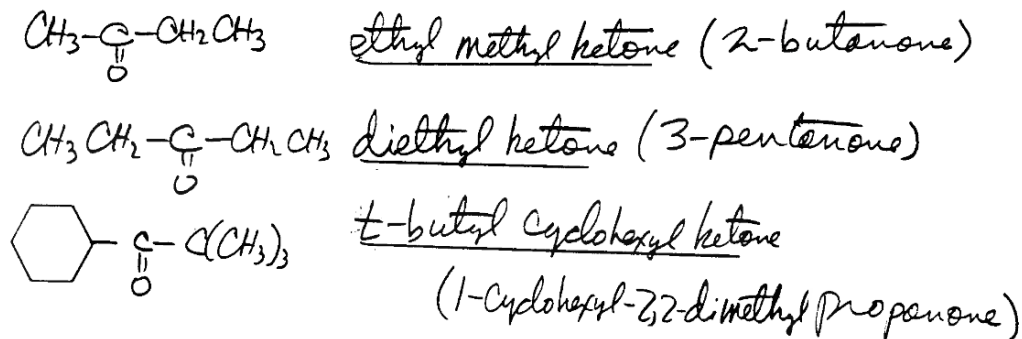 CH3-C-CH2CH3 ethyl methyl ketone (2-butanone)
O
CH3CH2-C-CH2CH3 diethyl ketone (3-pentanone)
O
-C-C(CH3)3 t-butyl cyclohexyl ketone
O
(1-cyclohexyl-2,2-dimethyl propanone)